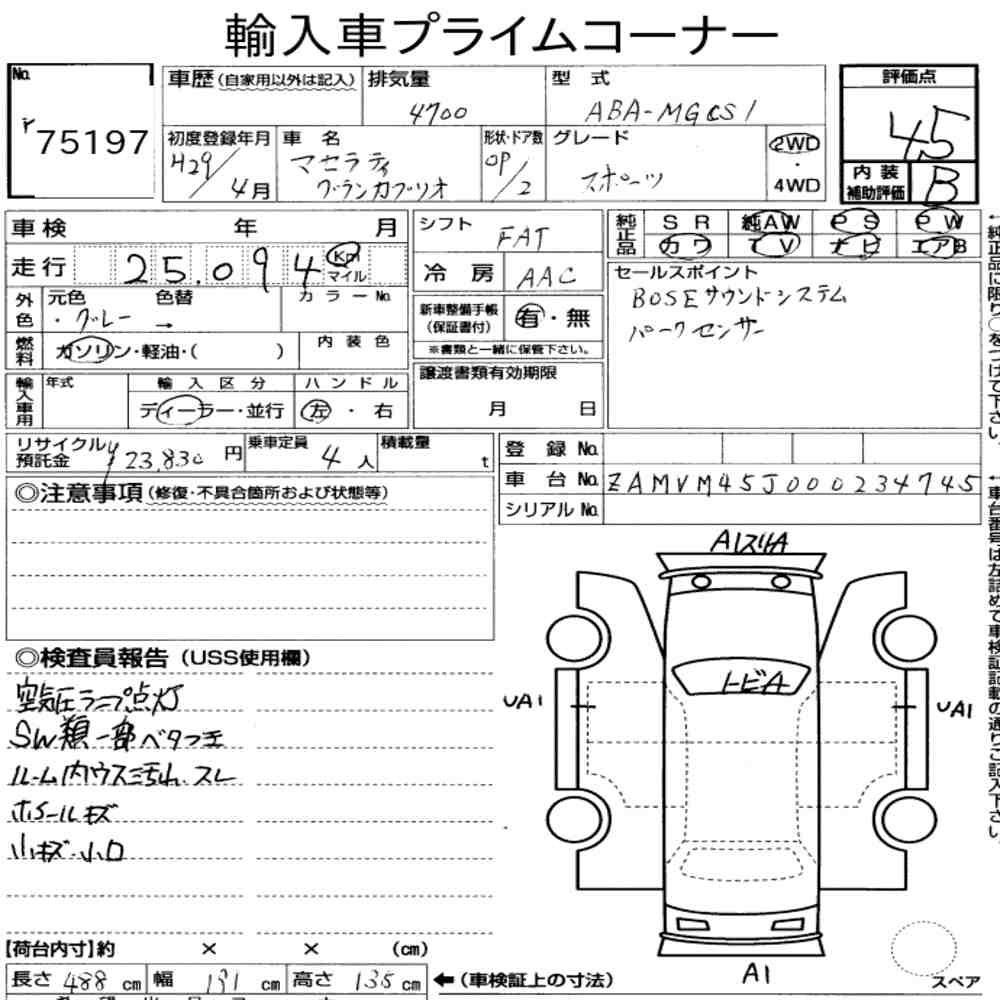 輸入車プライムコーナー
No.
75197
車歴(自家用以外は記入)
排気量
4700
型 式
ABA-MGCS1
評価点
4.5
初度登録年月
H29/4月
車 名
マセラティ
グランカブリオ
形状・ドア数
OP/2
グレード
スポーツ
2WD
・
4WD
内 装
補助評価
B
車 検 年 月
シフト
FAT
純正品
S R 純AW P S P W
カワ T V ナビ エアB
走 行
25.094
Km
マイル
冷 房
AAC
セールスポイント
BOSEサウンドシステム
パークセンサー
外色
元色 色替 カラーNo.
・グレー →
新車整備手帳
(保証書付)
有・無
※書類と一緒に保管下さい。
燃料
ガソリン・軽油・( )
内 装 色
譲渡書類有効期限
月 日
輸入車用
年式
輸 入 区 分
ディーラー・並行
ハ ン ド ル
左 ・ 右
リサイクル
預託金
¥23,830 円
乗車定員
4 人
積載量
t
登 録 No.
車 台 No. ZAMVM45J000234745
シリアル No.
◎注意事項(修復・不具合箇所および状態等)
◎検査員報告(USS使用欄)
空気圧ランプ点灯
SW類一部ベタつき
ルーム内ウスミ汚れ.スレ
ホイールキズ
小キズ・小凹
AスリA
トビA
UA1
UA1
A1
スペア
【荷台内寸】約 × × (cm)
長さ 488 cm 幅 191 cm 高さ 135 cm
←(車検証上の寸法)
←純正品に限り○をつけて下さい。
←車台番号は左詰めで車検証記載の通りご記入下さい。